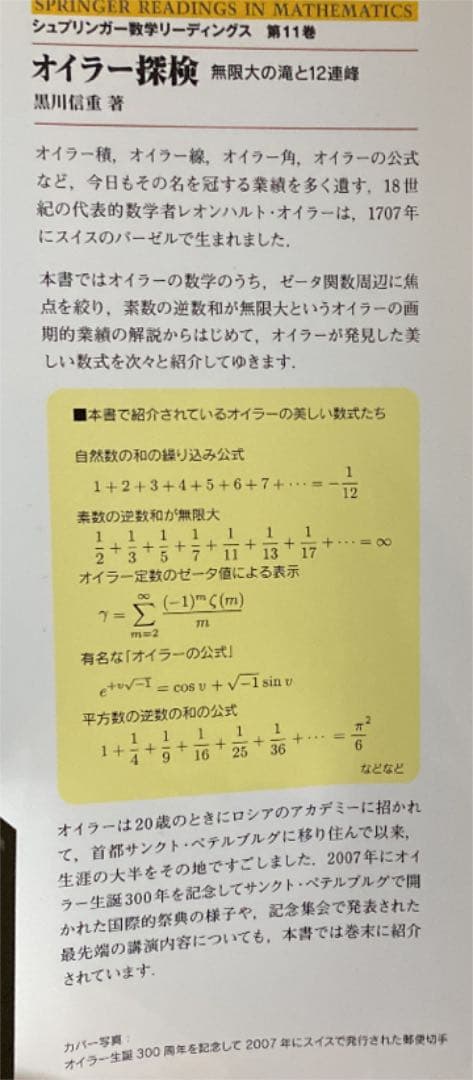 SPRINGER READINGS IN MATHEMATICS
シュプリンガー数学リーディングス 第11巻
オイラー探検 無限大の滝と12連峰
黒川信重 著
オイラー積，オイラー線，オイラー角，オイラーの公式
など，今日もその名を冠する業績を多く遺す，18世
紀の代表的数学者レオンハルト・オイラーは，1707年
にスイスのバーゼルで生まれました．
本書ではオイラーの数学のうち，ゼータ関数周辺に焦
点を絞り，素数の逆数和が無限大というオイラーの画
期的業績の解説からはじめて，オイラーが発見した美
しい数式を次々と紹介してゆきます．
■本書で紹介されているオイラーの美しい数式たち
自然数の和の繰り込み公式
1+2+3+4+5+6+7+⋯=−1/12
素数の逆数和が無限大
1/2+1/3+1/5+1/7+1/11+1/13+1/17+⋯=∞
オイラー定数のゼータ値による表示
γ=∑_{m=2}^{∞} (−1)^m ζ(m)/m
有名な「オイラーの公式」
e^{+v√−1}=cos v+√−1 sin v
平方数の逆数の和の公式
1+1/4+1/9+1/16+1/25+1/36+⋯=π²/6
などなど
オイラーは20歳のときにロシアのアカデミーに招かれ
て，首都サンクト・ペテルブルグに移り住んで以来，
生涯の大半をその地ですごしました．2007年にオイ
ラー生誕300年を記念してサンクト・ペテルブルグで開
かれた国際的祭典の様子や，記念集会で発表された
最先端の講演内容についても，本書では巻末に紹介
されています．
カバー写真：
オイラー生誕 300 周年を記念して 2007 年にスイスで発行された郵便切手